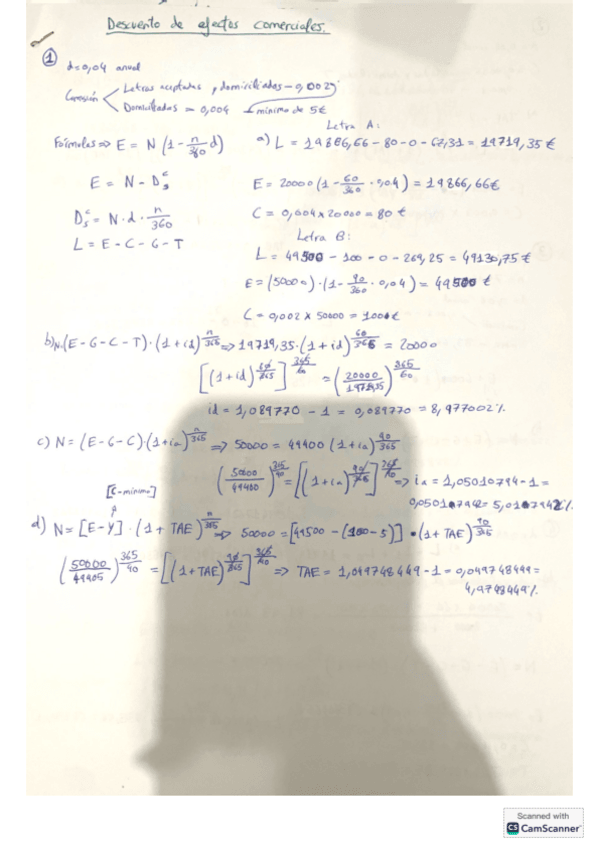 Descuento de efectos comerciales.
① d=0,04 anual
Comisión
Letras aceptadas y domiciliadas → 0,002
Domiciliadas = 0,004
mínimo de 5€
Letra A:
Fórmulas => E = N (1 - n/360 d)
a) L = 19866,66 - 80 - 0 - 67,31 = 19719,35 €
E = N - Dsᶜ
E = 20000 (1 - 60/360 · 0,04) = 19866,66€
Dsᶜ = N · d · n/360
C = 0,004 x 20000 = 80 €
L = E - C - G - T
Letra B:
L = 49500 - 100 - 0 - 269,25 = 49130,75 €
E = (50000) · (1 - 90/360 · 0,04) = 49500 €
C = 0,002 x 50000 = 100€
b) N = (E - G - C - T) · (1 + id)^n/365 => 19719,35 · (1 + id)^60/365 = 20000
[(1 + id)^60/365]^365/60 = (20000/19719,35)^365/60
id = 1,089770 - 1 = 0,089770 = 8,977002%
c) N = (E - G - C) · (1 + ia)^n/365 => 50000 = 49400 (1 + ia)^90/365
(50000/49400)^365/90 = [(1 + ia)^90/365]^365/90 => ia = 1,05010794 - 1 =
[C-mínimo]
d) N = [E - Y] · (1 + TAE)^n/365 => 50000 = [49500 - (100 - 5)] · (1 + TAE)^90/365
(50000/49405)^365/90 = [(1 + TAE)^90/365]^365/90 => TAE = 1,049748449 - 1 = 0,049748449 =
4,9748449%
Scanned with
CS CamScanner